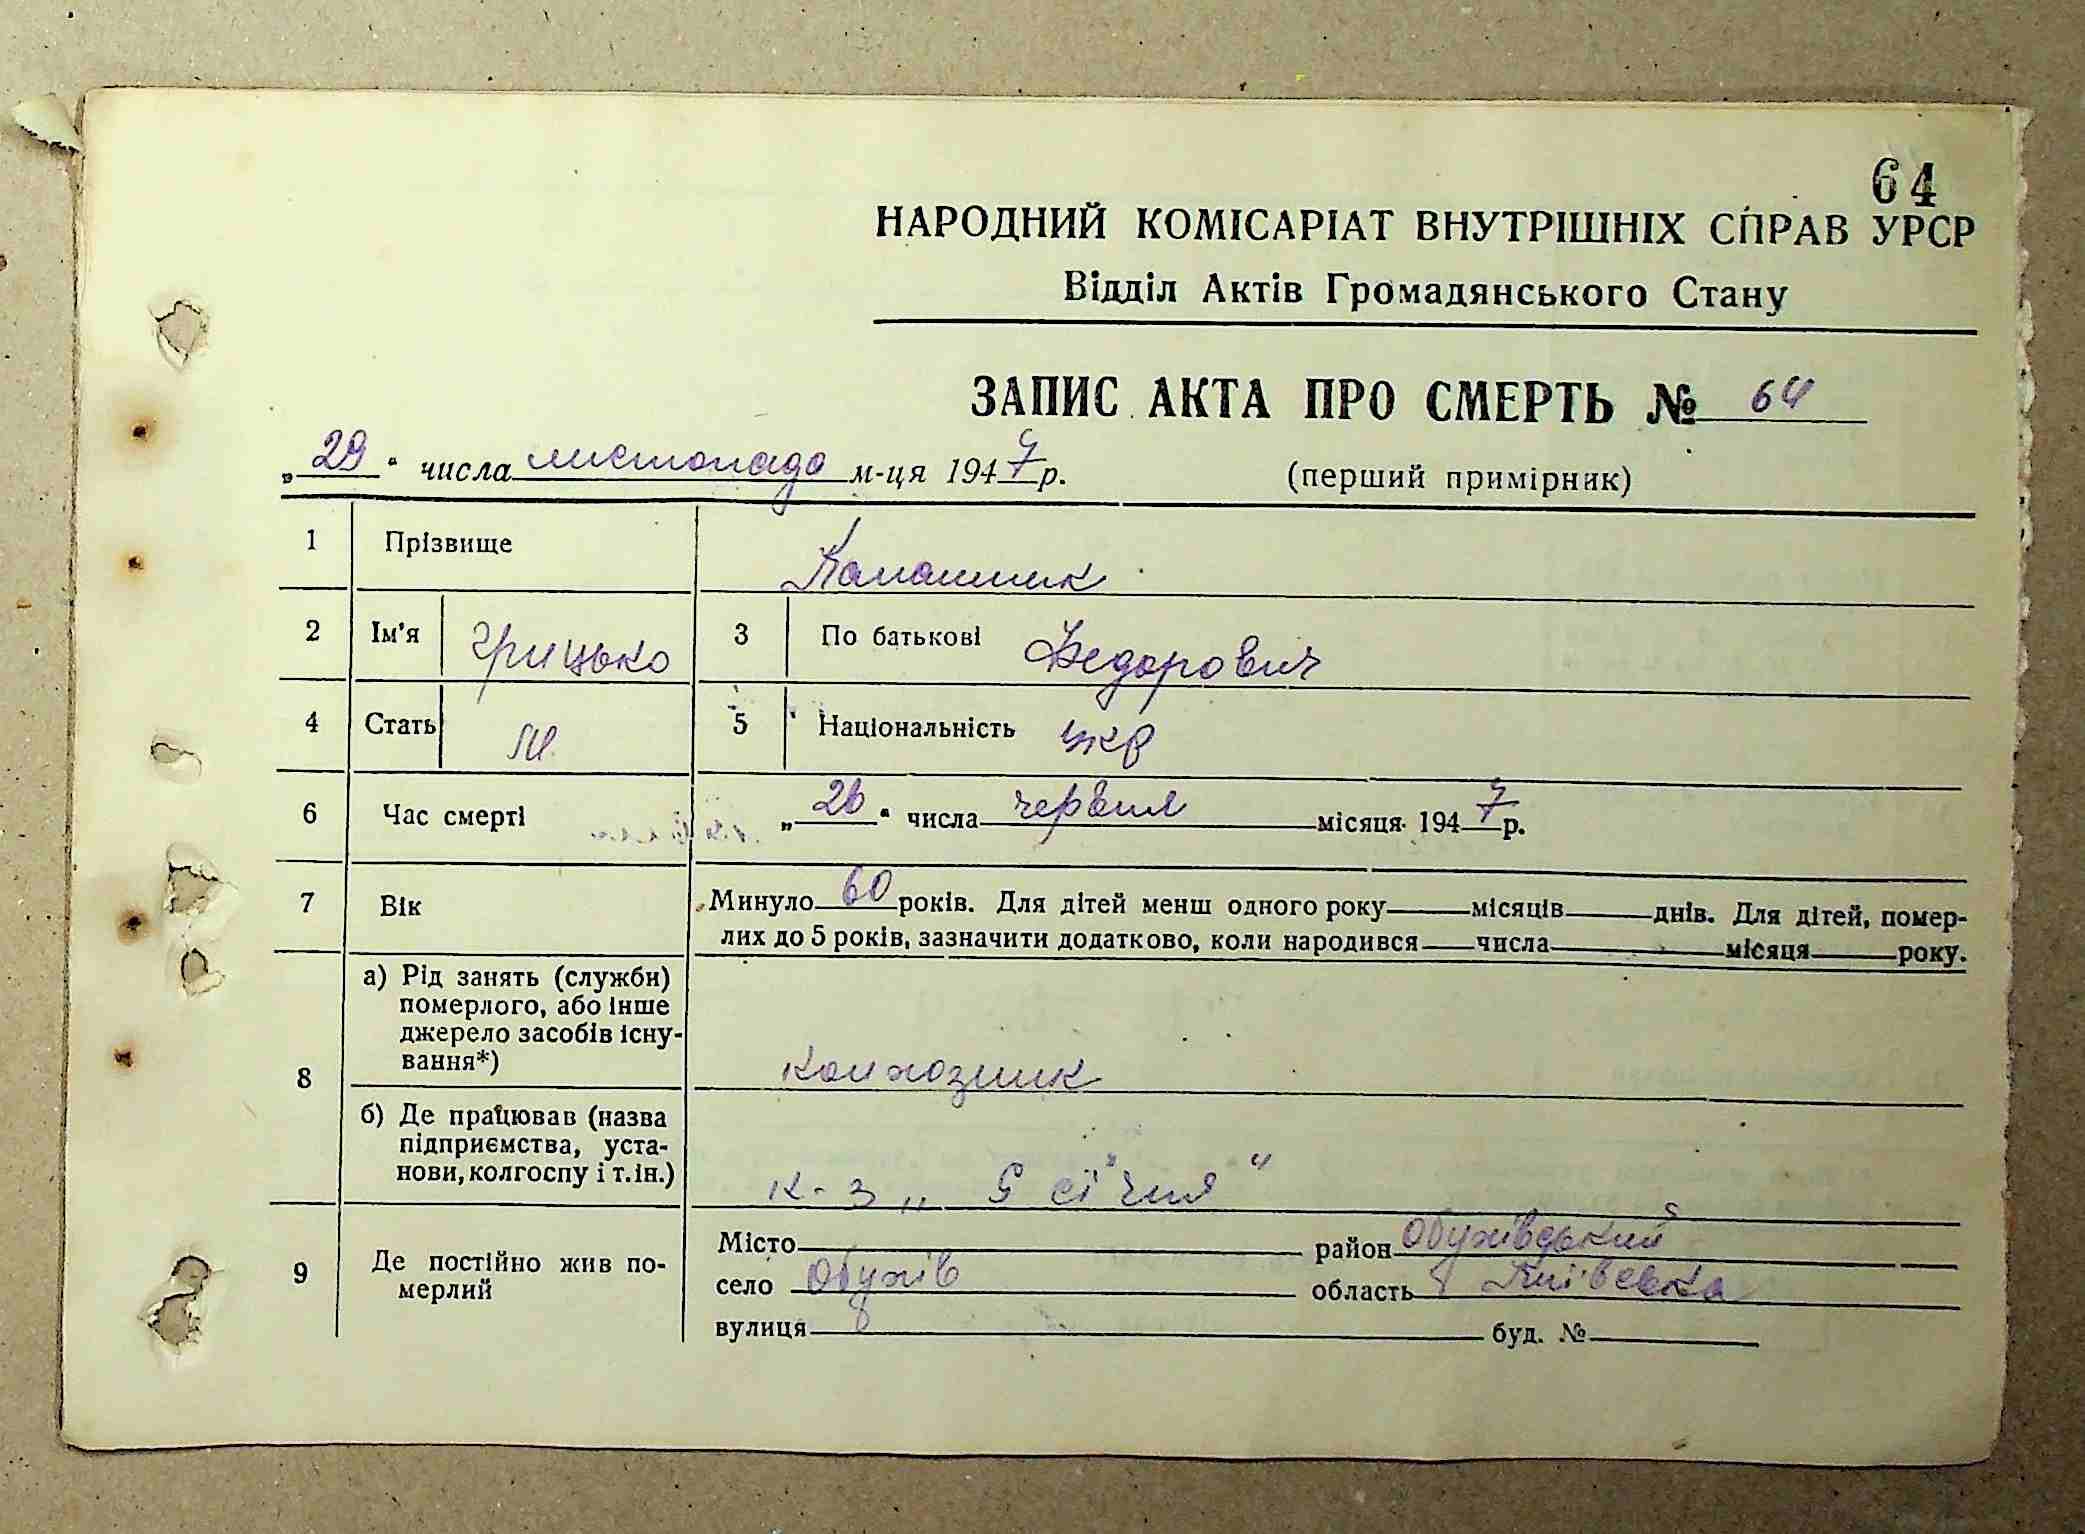 64
НАРОДНИЙ КОМІСАРІАТ ВНУТРІШНІХ СПРАВ УРСР
Відділ Актів Громадянського Стану
ЗАПИС АКТА ПРО СМЕРТЬ № 64
„29“ числа листопада м-ця 1947 р. (перший примірник)
1 Прізвище Калашник
2 Ім'я Грицько 3 По батькові Федорович
4 Стать М 5 Національність укр
6 Час смерті „26“ числа червня місяця 1947 р.
7 Вік Минуло 60 років. Для дітей менш одного року місяців днів. Для дітей, помер-
лих до 5 років, зазначити додатково, коли народився числа місяця року.
8 а) Рід занять (служби)
померлого, або інше
джерело засобів існу-
вання*) колхозник
б) Де працював (назва
підприємства, уста-
нови, колгоспу і т.ін.) к-з „ 9 січня “
9 Де постійно жив по-
мерлий
Місто район Обухівський
село Обухів область Київська
вулиця буд. №